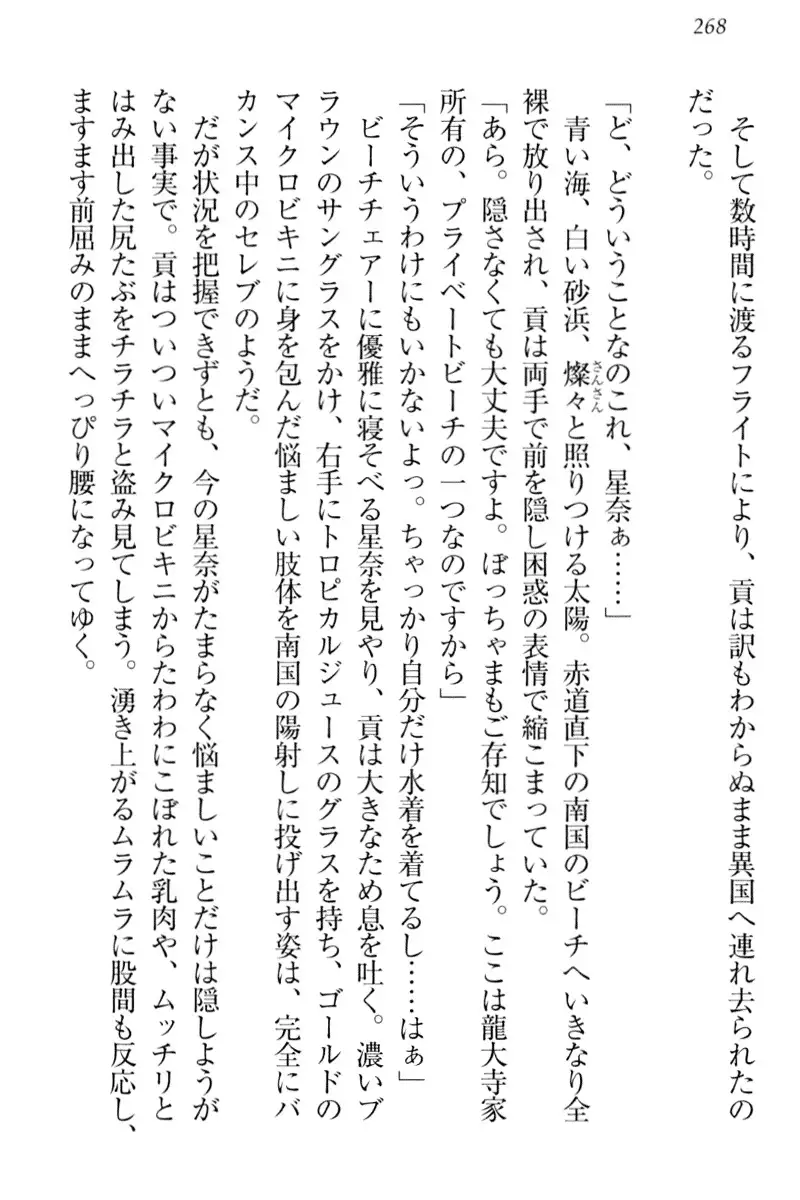 268
　そして数時間に渡るフライトにより、貢は訳もわからぬまま異国へ連れ去られたの
だった。
「ど、どういうことなのこれ、星奈ぁ……」
　青い海、白い砂浜、燦々と照りつける太陽。赤道直下の南国のビーチへいきなり全
裸で放り出され、貢は両手で前を隠し困惑の表情で縮こまっていた。
「あら。隠さなくても大丈夫ですよ。ぼっちゃまもご存知でしょう。ここは龍大寺家
所有の、プライベートビーチの一つなのですから」
「そういうわけにもいかないよっ。ちゃっかり自分だけ水着を着てるし……はぁ」
　ビーチチェアーに優雅に寝そべる星奈を見やり、貢は大きなため息を吐く。濃いブ
ラウンのサングラスをかけ、右手にトロピカルジュースのグラスを持ち、ゴールドの
マイクロビキニに身を包んだ悩ましい肢体を南国の陽射しに投げ出す姿は、完全にバ
カンス中のセレブのようだ。
　だが状況を把握できずとも、今の星奈がたまらなく悩ましいことだけは隠しようが
ない事実で。貢はついついマイクロビキニからたわわにこぼれた乳肉や、ムッチリと
はみ出した尻たぶをチラチラと盗み見てしまう。湧き上がるムラムラに股間も反応し、
ますます前屈みのままへっぴり腰になってゆく。
さんさん